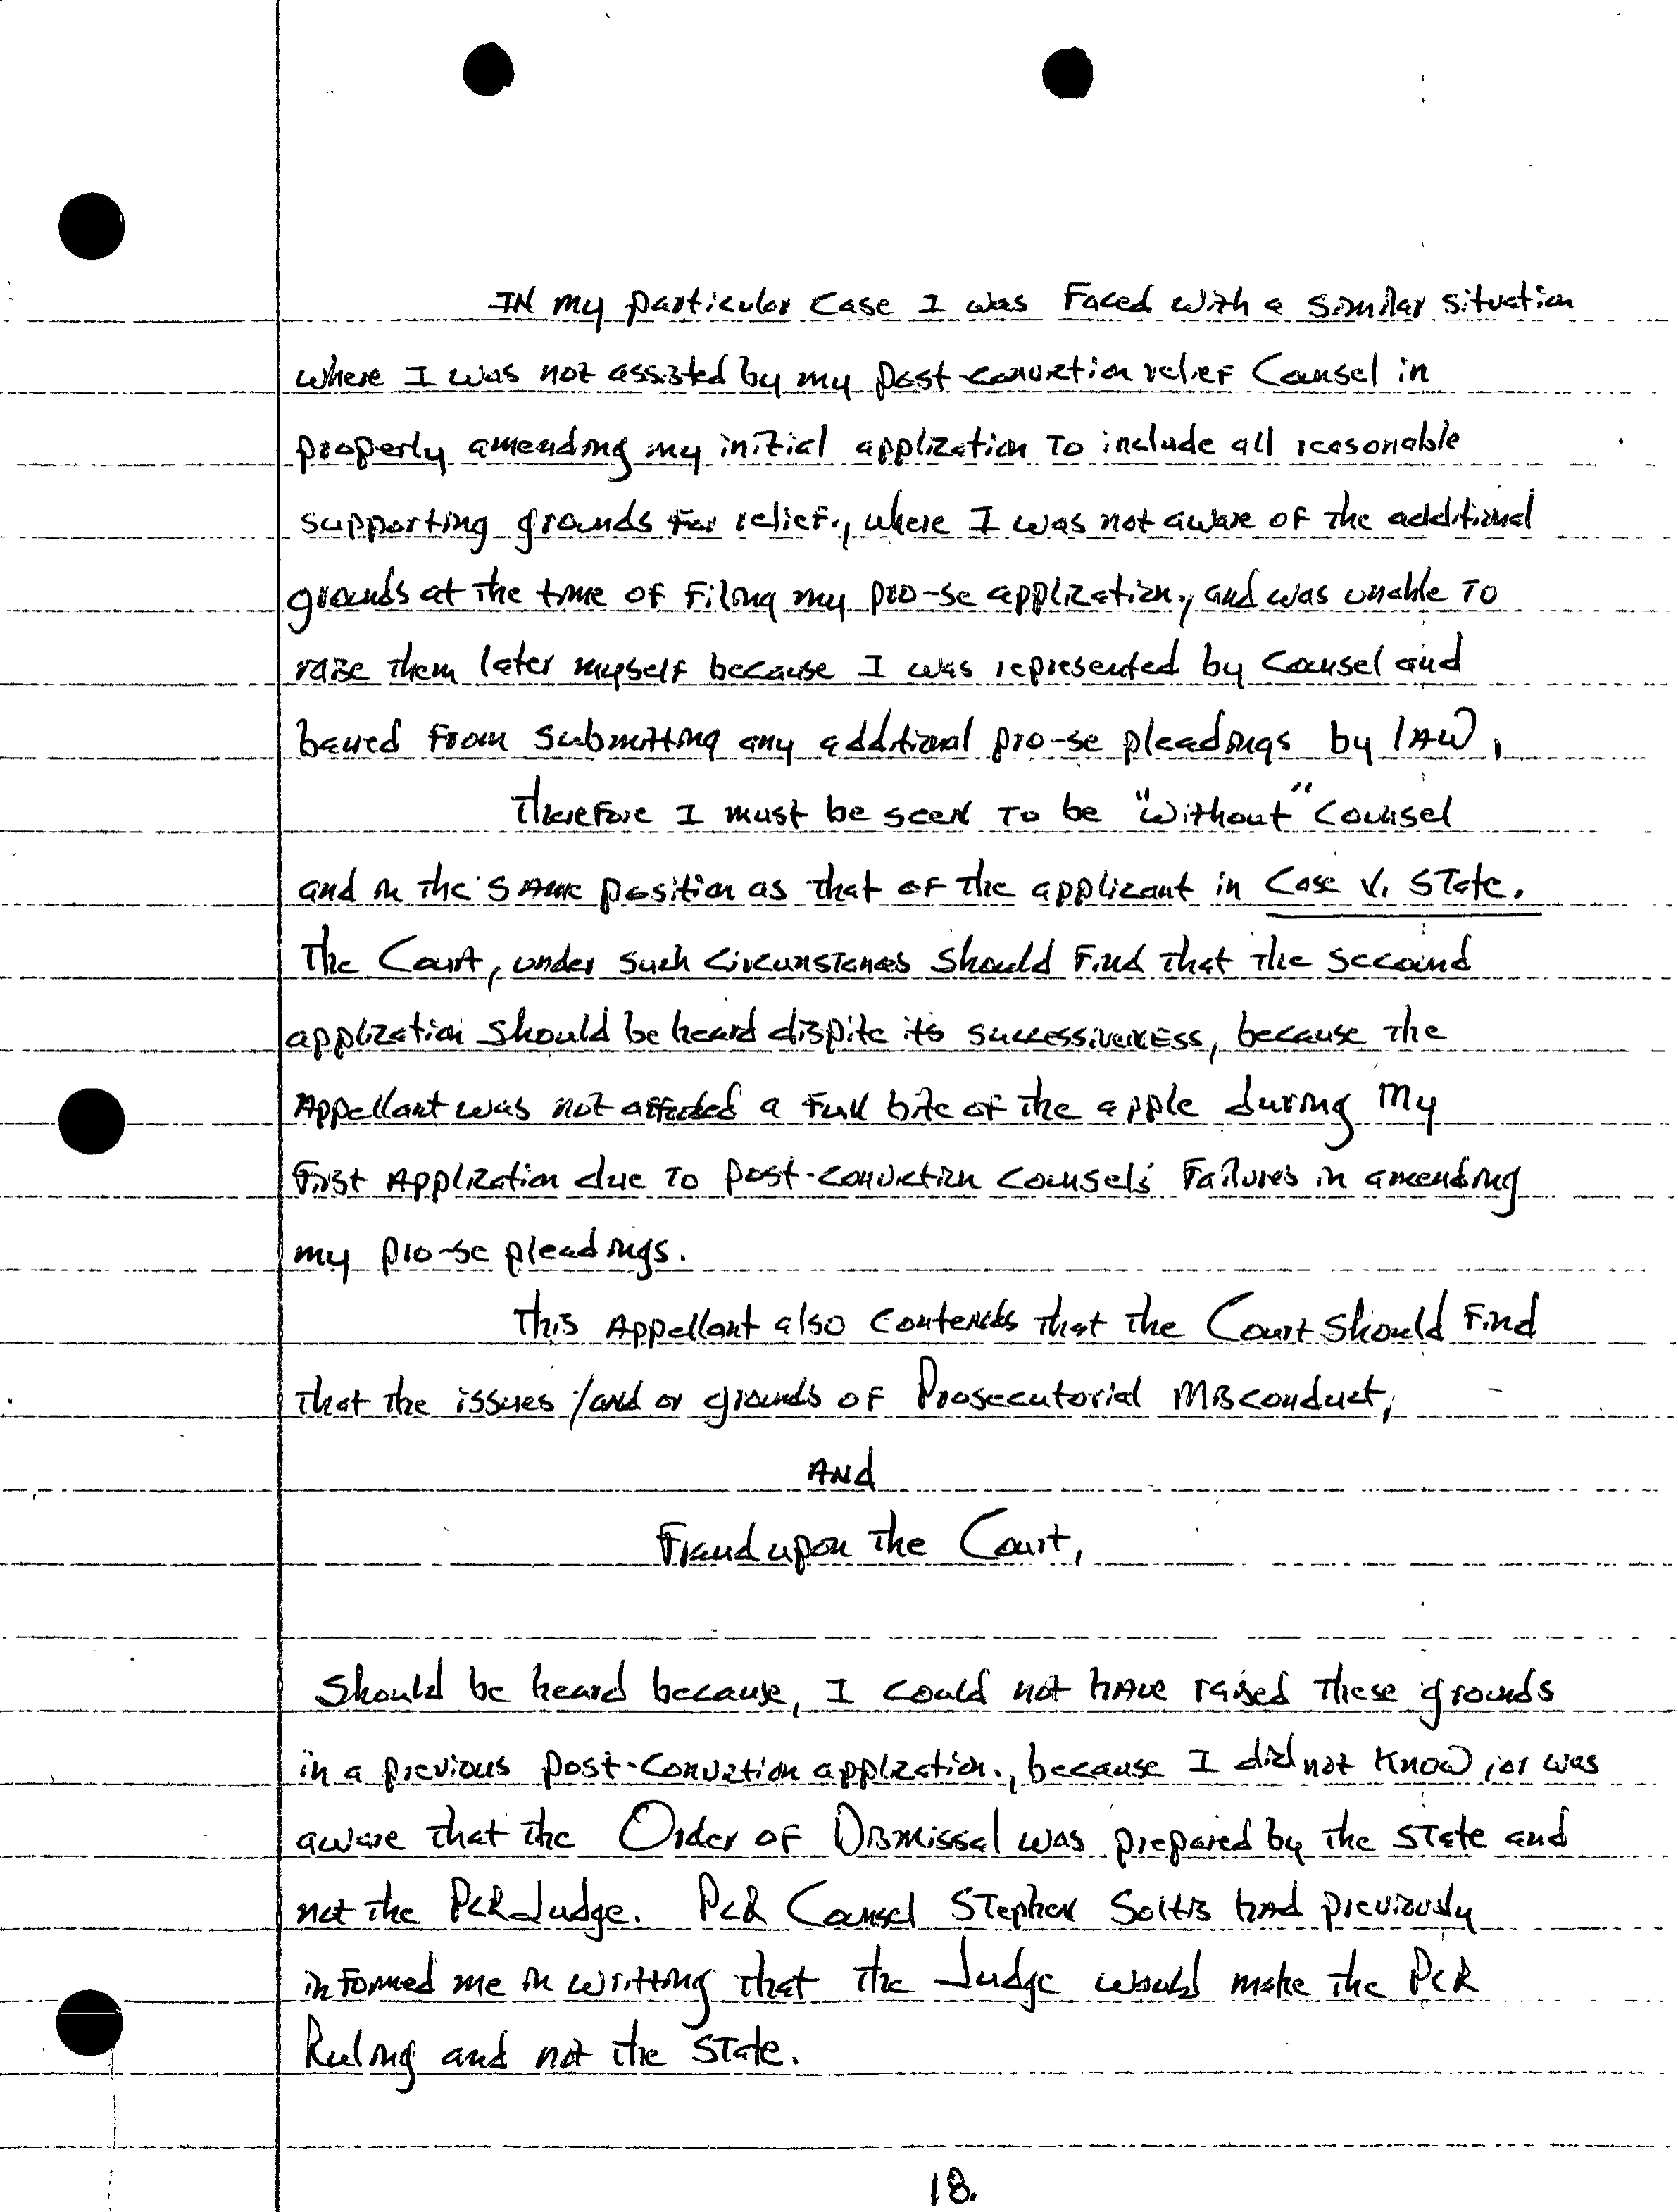 IN my particular case I was faced with a similar situation
where I was not assisted by my post-conviction relief Counsel in
properly amending my initial application to include all reasonable
supporting grounds for relief., where I was not aware of the additional
grounds at the time of filing my pro-se application., and was unable to
raise them later myself because I was represented by Counsel and
barred from submitting any additional pro-se pleadings by law.
Therefore I must be seen to be "without" Counsel
and in the same position as that of the applicant in Case v. State.
The Court, under such circumstances should find that the second
application should be heard dispite its successiveness, because the
Appellant was not afforded a full bite of the apple during my
first Application due to post-conviction counsel's failures in amending
my pro-se pleadings.
This Appellant also contends that the Court should find
that the issues /and or grounds of Prosecutorial Misconduct,
AND
Fraud upon the Court,
Should be heard because, I could not have raised these grounds
in a previous post-conviction application., because I did not know, or was
aware that the Order of Dismissal was prepared by the state and
not the PCR Judge. PCR Counsel Stephen Soltis had previously
informed me in writting that the Judge would make the PCR
Ruling and not the State.
18.